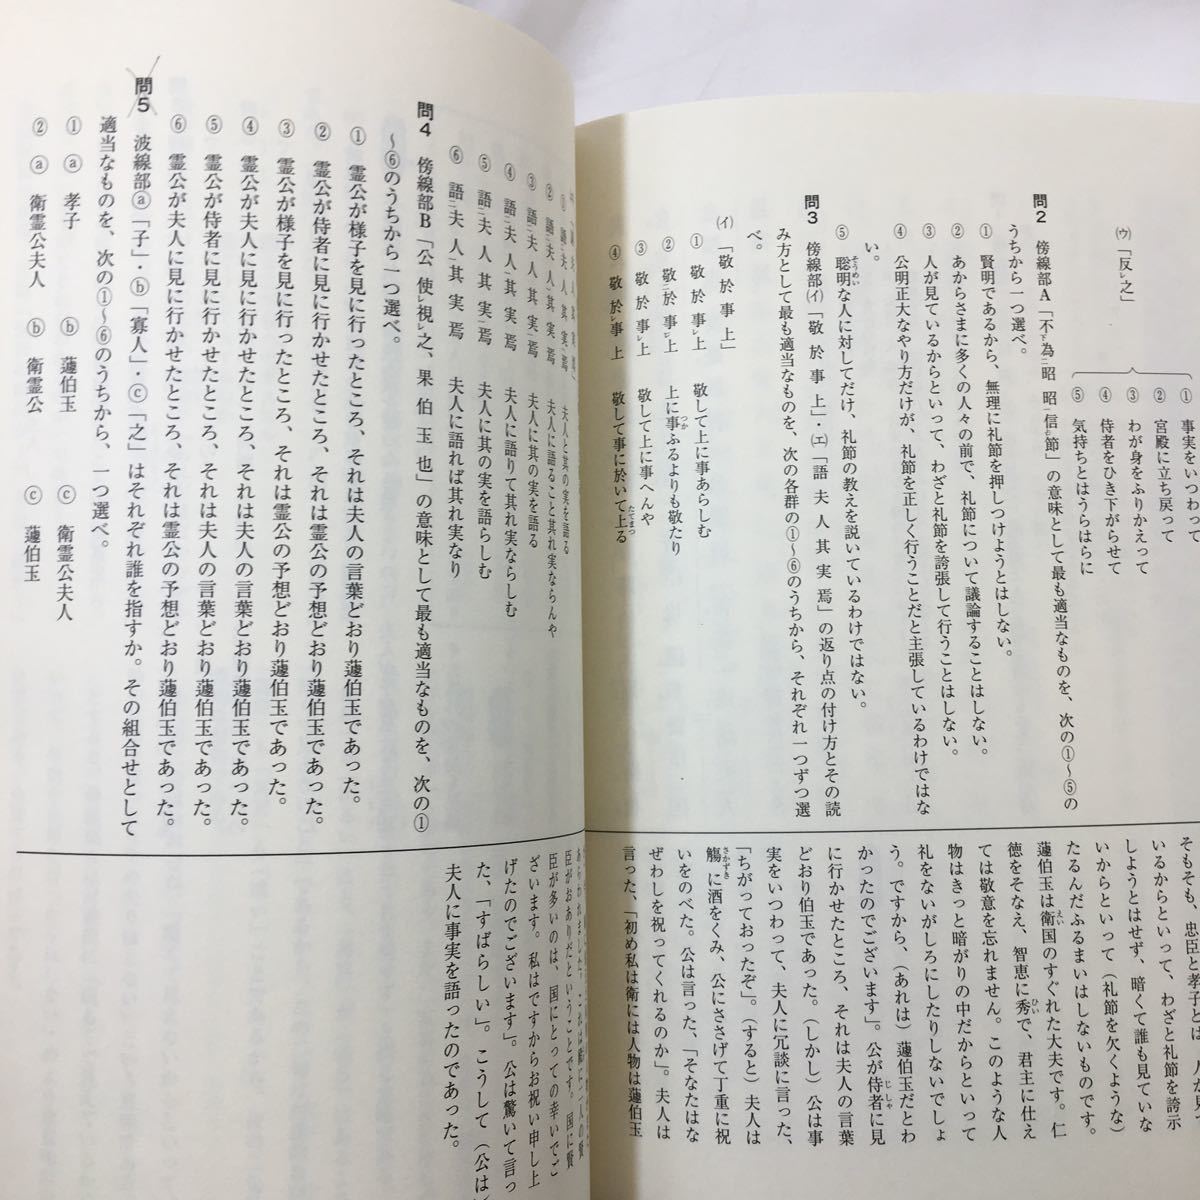 ㈦「反レ之」
① 事実をいつわって
② 宮殿に立ち戻って
③ わが身をふりかえって
④ 侍者をひき下がらせて
⑤ 気持ちとはうらはらに
問2 傍線部A「不下為二昭昭一信上レ節」の意味として最も適当なものを、次の①～⑤の
うちから一つ選べ。
① 賢明であるから、無理に礼節を押しつけようとはしない。
② あからさまに多くの人々の前で、礼節について議論することはしない。
③ 人が見ているからといって、わざと礼節を誇張して行うことはしない。
④ 公明正大なやり方だけが、礼節を正しく行うことだと主張しているわけではな
い。
⑤ 聡明な人に対してだけ、礼節の教えを説いているわけではない。
問3 傍線部㈑「敬於事上」・㈓「語夫人其実焉」の返り点の付け方とその読
み方として最も適当なものを、次の各群の①～⑥のうちから、それぞれ一つずつ選
べ。
㈑「敬於事上」
① 敬於事レ上 敬して上に事あらしむ
② 敬二於事一レ上 上に事ふるよりも敬たり
③ 敬於事レ上 敬して上に事へんや
④ 敬於レ事上 敬して事に於いて上る
夫人と其の実を語る
② 夫人に語ること其れ実ならんや
③ 語夫人其実焉 夫人に其の実を語る
④ 語夫人其実焉 夫人に語りて其れ実ならしむ
⑤ 語夫人其実焉 夫人に其の実を語らしむ
⑥ 語夫人其実焉 夫人に語れば其れ実なり
問4 傍線部B「公使レ視レ之、果伯玉也」の意味として最も適当なものを、次の①
～⑥のうちから一つ選べ。
① 霊公が様子を見に行ったところ、それは夫人の言葉どおり蘧伯玉であった。
② 霊公が侍者に見に行かせたところ、それは霊公の予想どおり蘧伯玉であった。
③ 霊公が様子を見に行ったところ、それは霊公の予想どおり蘧伯玉であった。
④ 霊公が夫人に見に行かせたところ、それは夫人の言葉どおり蘧伯玉であった。
⑤ 霊公が侍者に見に行かせたところ、それは夫人の言葉どおり蘧伯玉であった。
⑥ 霊公が夫人に見に行かせたところ、それは霊公の予想どおり蘧伯玉であった。
問5 波線部ⓐ「子」・ⓑ「寡人」・ⓒ「之」はそれぞれ誰を指すか。その組合せとして
適当なものを、次の①～⑥のうちから、一つ選べ。
① ⓐ 孝子 ⓑ 蘧伯玉 ⓒ 衛霊公夫人
② ⓐ 衛霊公夫人 ⓑ 衛霊公 ⓒ 蘧伯玉
そもそも、忠臣と孝子とは、
いるからといって、わざと礼節を誇示
しようとはせず、暗くて誰も見ていな
いからといって（礼節を欠くような）
たるんだふるまいはしないものです。
蘧伯玉は衛国のすぐれた大夫です。仁
徳をそなえ、智恵に秀で、君主に仕え
ては敬意を忘れません。このような人
物はきっと暗がりの中だからといって
礼をないがしろにしたりしないでしょ
う。ですから、（あれは）蘧伯玉だとわ
かったのでございます」。公が侍者に見
に行かせたところ、それは夫人の言葉
どおり伯玉であった。（しかし）公は事
実をいつわって、夫人に冗談に言った、
「ちがっておったぞ」。（すると）夫人は
觴に酒をくみ、公にささげて丁重に祝
いをのべた。公は言った、「そなたはな
ぜわしを祝ってくれるのか」。夫人は
言った、「初め私は衛には人物は蘧伯玉
臣がおありだということです。国に賢
臣が多いのは、国にとっての幸いでご
ざいます。私はですからお祝い申し上
げたのでございます」。公は驚いて言っ
た、「すばらしい」。こうして（公は）
夫人に事実を語ったのであった。